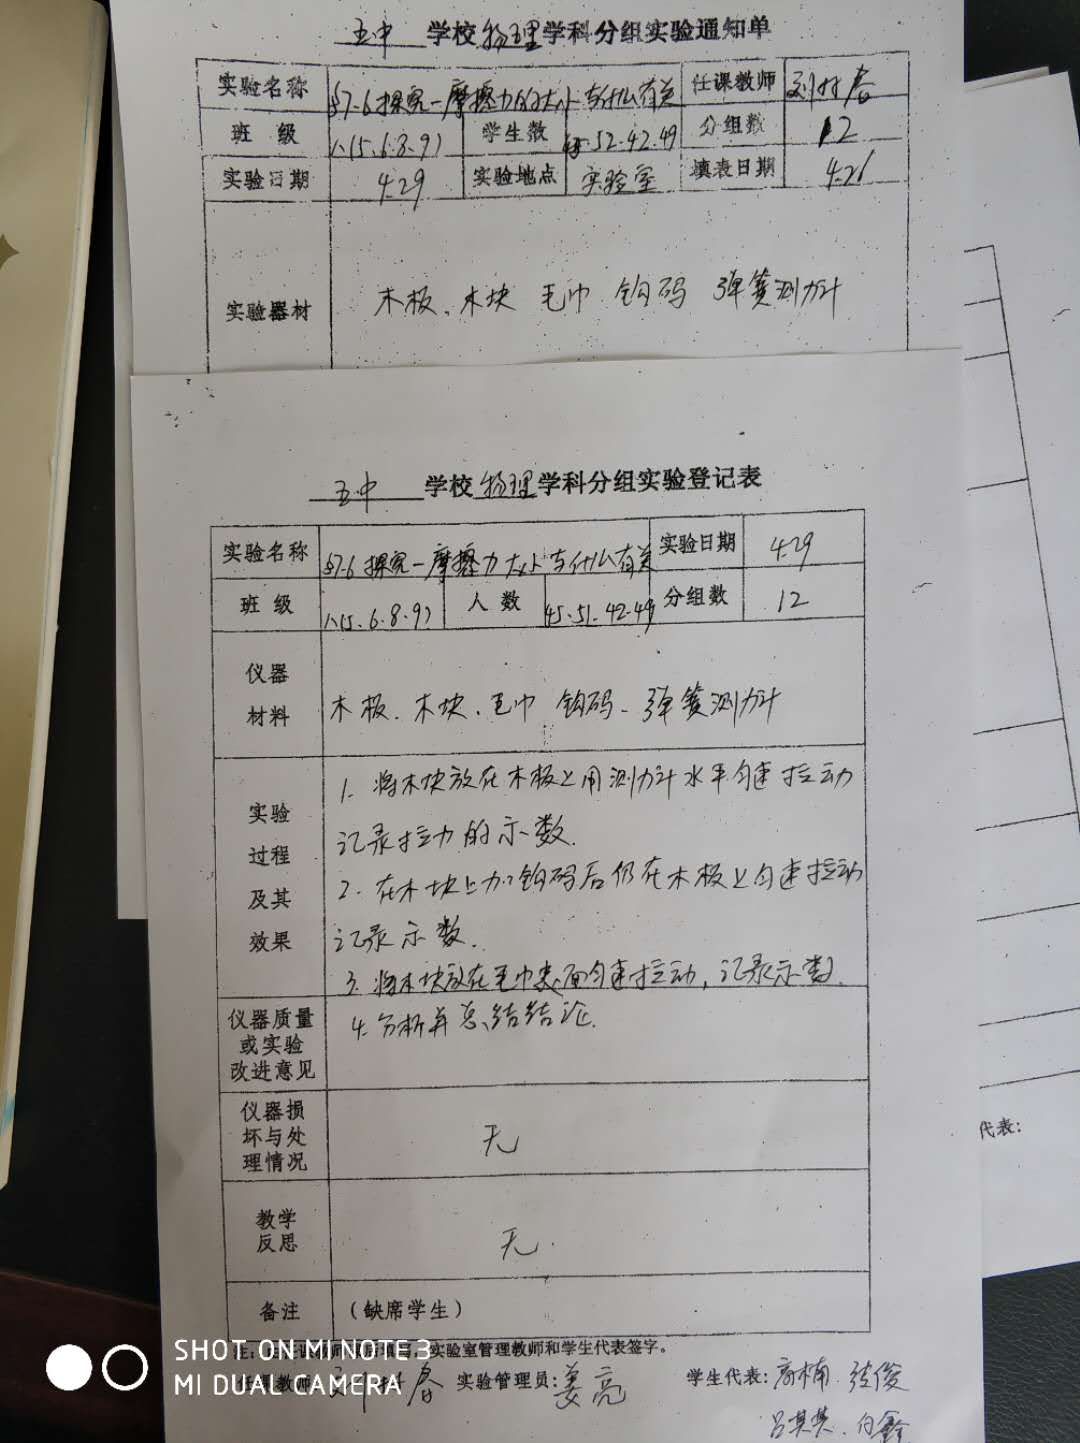 五中 学校 物理 学科分组实验通知单
实验名称 §7-6探究—摩擦力的大小与什么有关 任课教师
班 级 八(5.6.8.9) 学生数 45.52.42.49 分组数 12
实验日期 4.29 实验地点 实验室 填表日期 4.26
实验器材 木板、木块 毛巾 钩码 弹簧测力计
五中 学校 物理 学科分组实验登记表
实验名称 §7-6 探究—摩擦力大小与什么有关 实验日期 4.29
班 级 八(5.6.8.9) 人 数 45.51.42.49 分组数 12
仪器
材料
木板、木块、毛巾 钩码、弹簧测力计
实验
过程
及其
效果
1. 将木块放在木板上用测力计水平匀速拉动
记录拉力的示数.
2. 在木块上加钩码后仍在木板上匀速拉动
记录示数.
3. 将木块放在毛巾表面匀速拉动,记录示数.
仪器质量
或实验
改进意见
4. 分析并总结结论.
仪器损
坏与处
理情况
无
教学
反思
无.
备注 (缺席学生)
实验室管理教师和学生代表签字。
实验管理员:姜亮 学生代表:高楠 张俊
吕其其、白鑫
代表:
SHOT ON MI NOTE 3
MI DUAL CAMERA